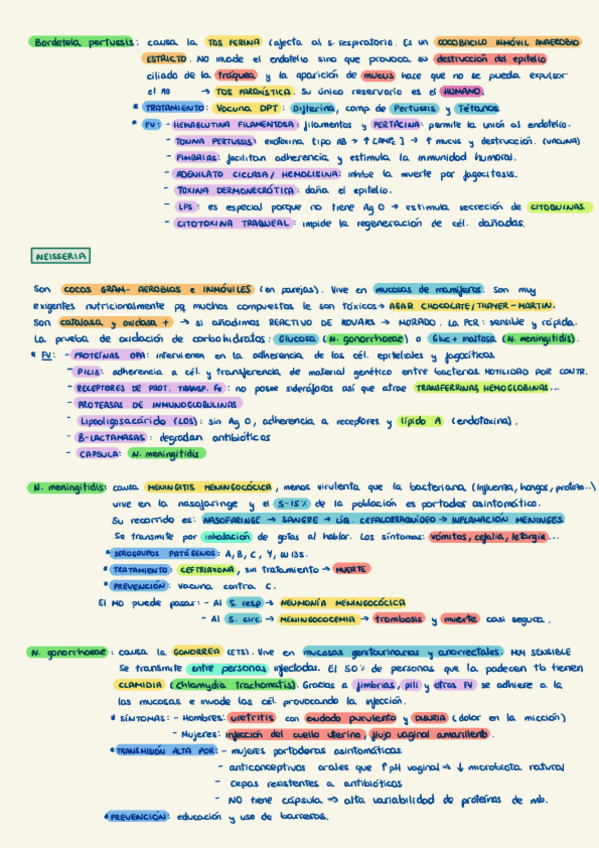 Bordetela pertussis: causa la TOS FERINA (afecta al s. respiratorio. Es un COCOBACILO INMÓVIL ANAEROBIO
ESTRICTO. No invade el endotelio sino que provoca su destrucción del epitelio
ciliado de la tráquea y la aparición de mucus hace que no se pueda expulsar
el MO → TOS PAROXÍSTICA. Su único reservorio es el HUMANO.
* TRATAMIENTO: Vacuna DPT: Difterina, comp de Pertussis y Tétanos
* FV: - HEMAGLUTINA FILAMENTOSA: filamentos y PERTACINA: permite la unión al endotelio.
- TOXINA PERTUSSIS: exotoxina tipo AB → ↑ [AMPc] → ↑ mucus y destrucción. (VACUNA)
- FIMBRIAS: facilitan adherencia y estimula la inmunidad humoral.
- ADENILATO CICLASA / HEMOLISINA: inhibe la muerte por fagocitosis.
- TOXINA DERMONECRÓTICA: daña el epitelio.
- LPS: es especial porque no tiene Ag O → estimula secreción de CITOQUINAS.
- CITOTOXINA TRAQUEAL: impide la regeneración de cél. dañadas.
NEISSERIA
Son COCOS GRAM- AEROBIOS e INMÓVILES (en parejas). Vive en mucosas de mamíferos. Son muy
exigentes nutricionalmente pq muchos compuestos le son tóxicos → AGAR CHOCOLATE/THAYER-MARTIN.
Son catalasa y oxidasa + → si añadimos REACTIVO DE KOVACS → MORADO. La PCR: sensible y rápida.
La prueba de oxidación de carbohidratos: Glucosa (N. gonorrhoeae) o Gluc + maltosa (N. meningitidis).
* FV: - PROTEÍNAS OPA: intervienen en la adherencia de las cél. epiteliales y fagocíticas
- PILIS: adherencia a cél. y transferencia de material genético entre bacterias. MOTILIDAD POR CONTR.
- RECEPTORES DE PROT. TRANSP. Fe: no posee sideróforos así que atrae TRANSFERRINAS, HEMOGLOBINAS...
- PROTEASAS DE INMUNOGLOBULINAS
- Lipooligosacárido (LOS): sin Ag O, adherencia a receptores y lípido A (endotoxina).
- B-LACTAMASAS: degradan antibióticos
- CAPSULA: N. meningitidis
N. meningitidis: causa MENINGITIS MENINGOCÓCICA, menos virulenta que la bacteriana (influenza, hongos, protozo..)
vive en la nasofaringe y el 5-15% de la población es portador asintomático.
Su recorrido es: NASOFARINGE → SANGRE → LÍQ. CEFALORRAQUÍDEO → INFLAMACIÓN MENINGES
Se transmite por inhalación de gotas al hablar. Los síntomas: vómitos, cefalia, letargia...
* SEROGRUPOS PATÓGENOS: A, B, C, Y, W135.
* TRATAMIENTO: CEFTRIAXONA, sin tratamiento → MUERTE
* PREVENCIÓN: vacuna contra C.
El MO puede pasar: - Al S. resp → NEUMONÍA MENINGOCÓCICA
- Al S. circ. → MENINGOCOCEMIA → trombosis y muerte casi segura.
N. gonorrhoeae: causa la GONORREA (ETS). Vive en mucosas genitourinarias y anorrectales. MUY SENSIBLE
Se transmite entre personas infectadas. El 50% de personas que la padecen tb tienen
CLAMIDIA (Chlamydia trachomatis). Gracias a fimbrias, pili y otras FV se adhiere a la
las mucosas e invade las cél. provocando la infección.
* SÍNTOMAS: - Hombres: uretritis con exudado purulento y DISURIA (dolor en la micción)
- Mujeres: infección del cuello uterino, flujo vaginal amarillento.
* TRANSMISIÓN ALTA POR: - mujeres portadoras asintomáticas
- anticonceptivos orales que ↑ pH vaginal → ↓ microbiota natural
- cepas resistentes a antibióticos
- NO tiene cápsula → alta variabilidad de proteínas de mb.
* PREVENCIÓN: educación y uso de barreras.